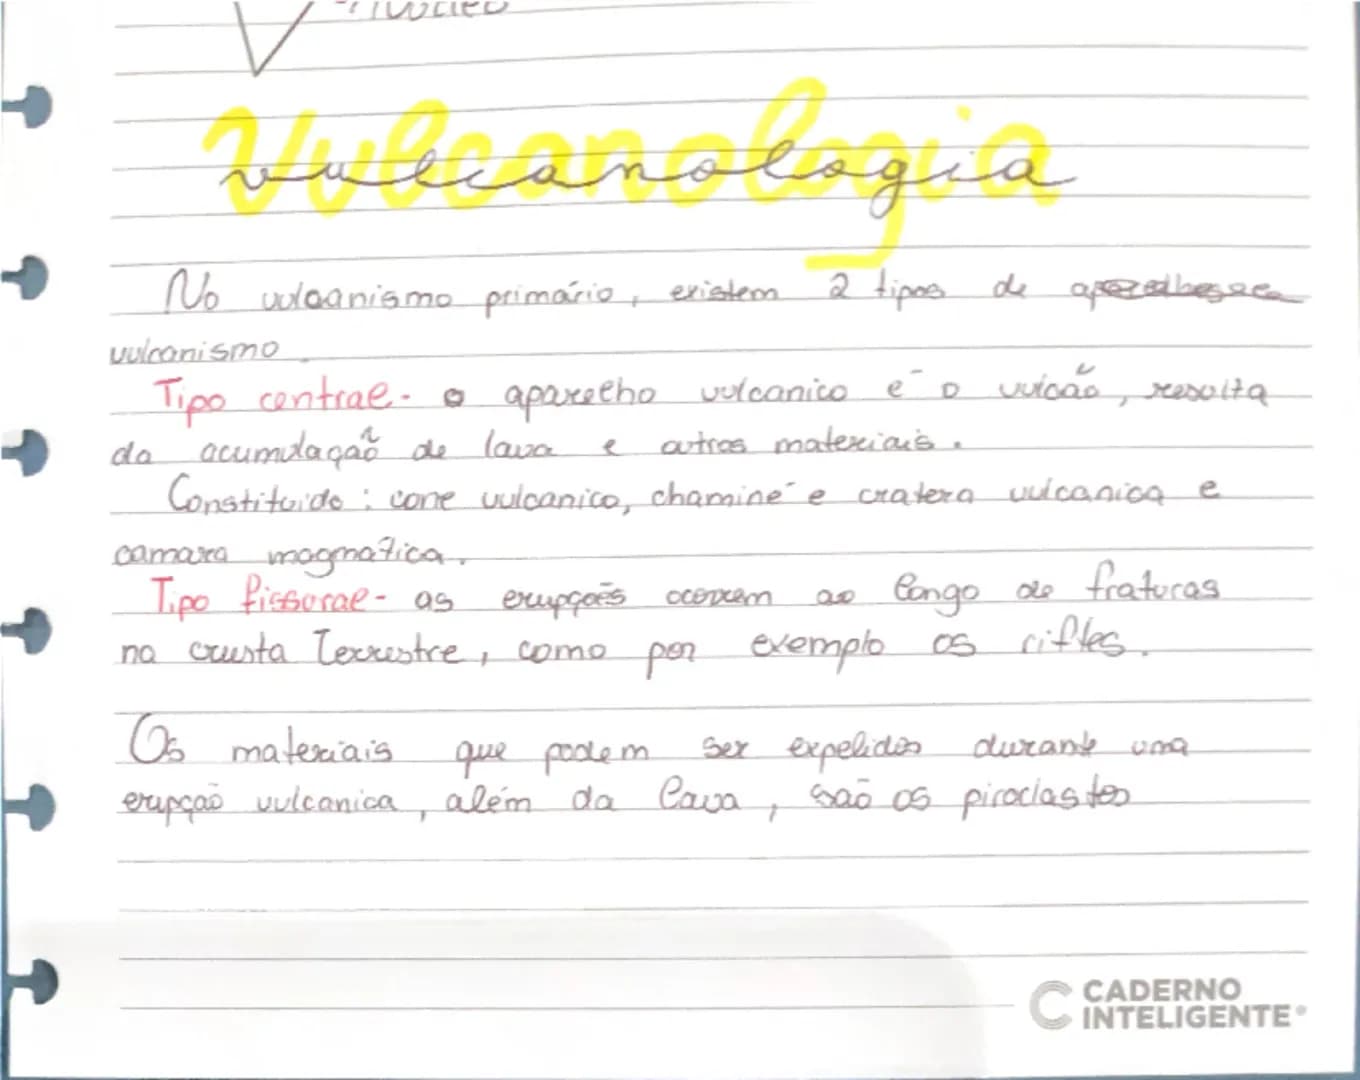 Vulcanologia
No vulcanismo primário, existem 2 tipos de
vulcanismo.
Tipo central- o aparelho vulcanico é o vulcão, resulta
da acumulação de lava e outros materiais.
Constituido: cone vulcanico, chaminé e cratera vulcanica e
camara magmatica.
Tipo fissural- as erupções ocorrem ao longo de fraturas
na crusta Terrestre, como por exemplo os riftes.
Os materiais que podem ser expelidos durante uma
erupção vulcanica, além da lava, são os piroclastos
CADERNO
INTELIGENTE